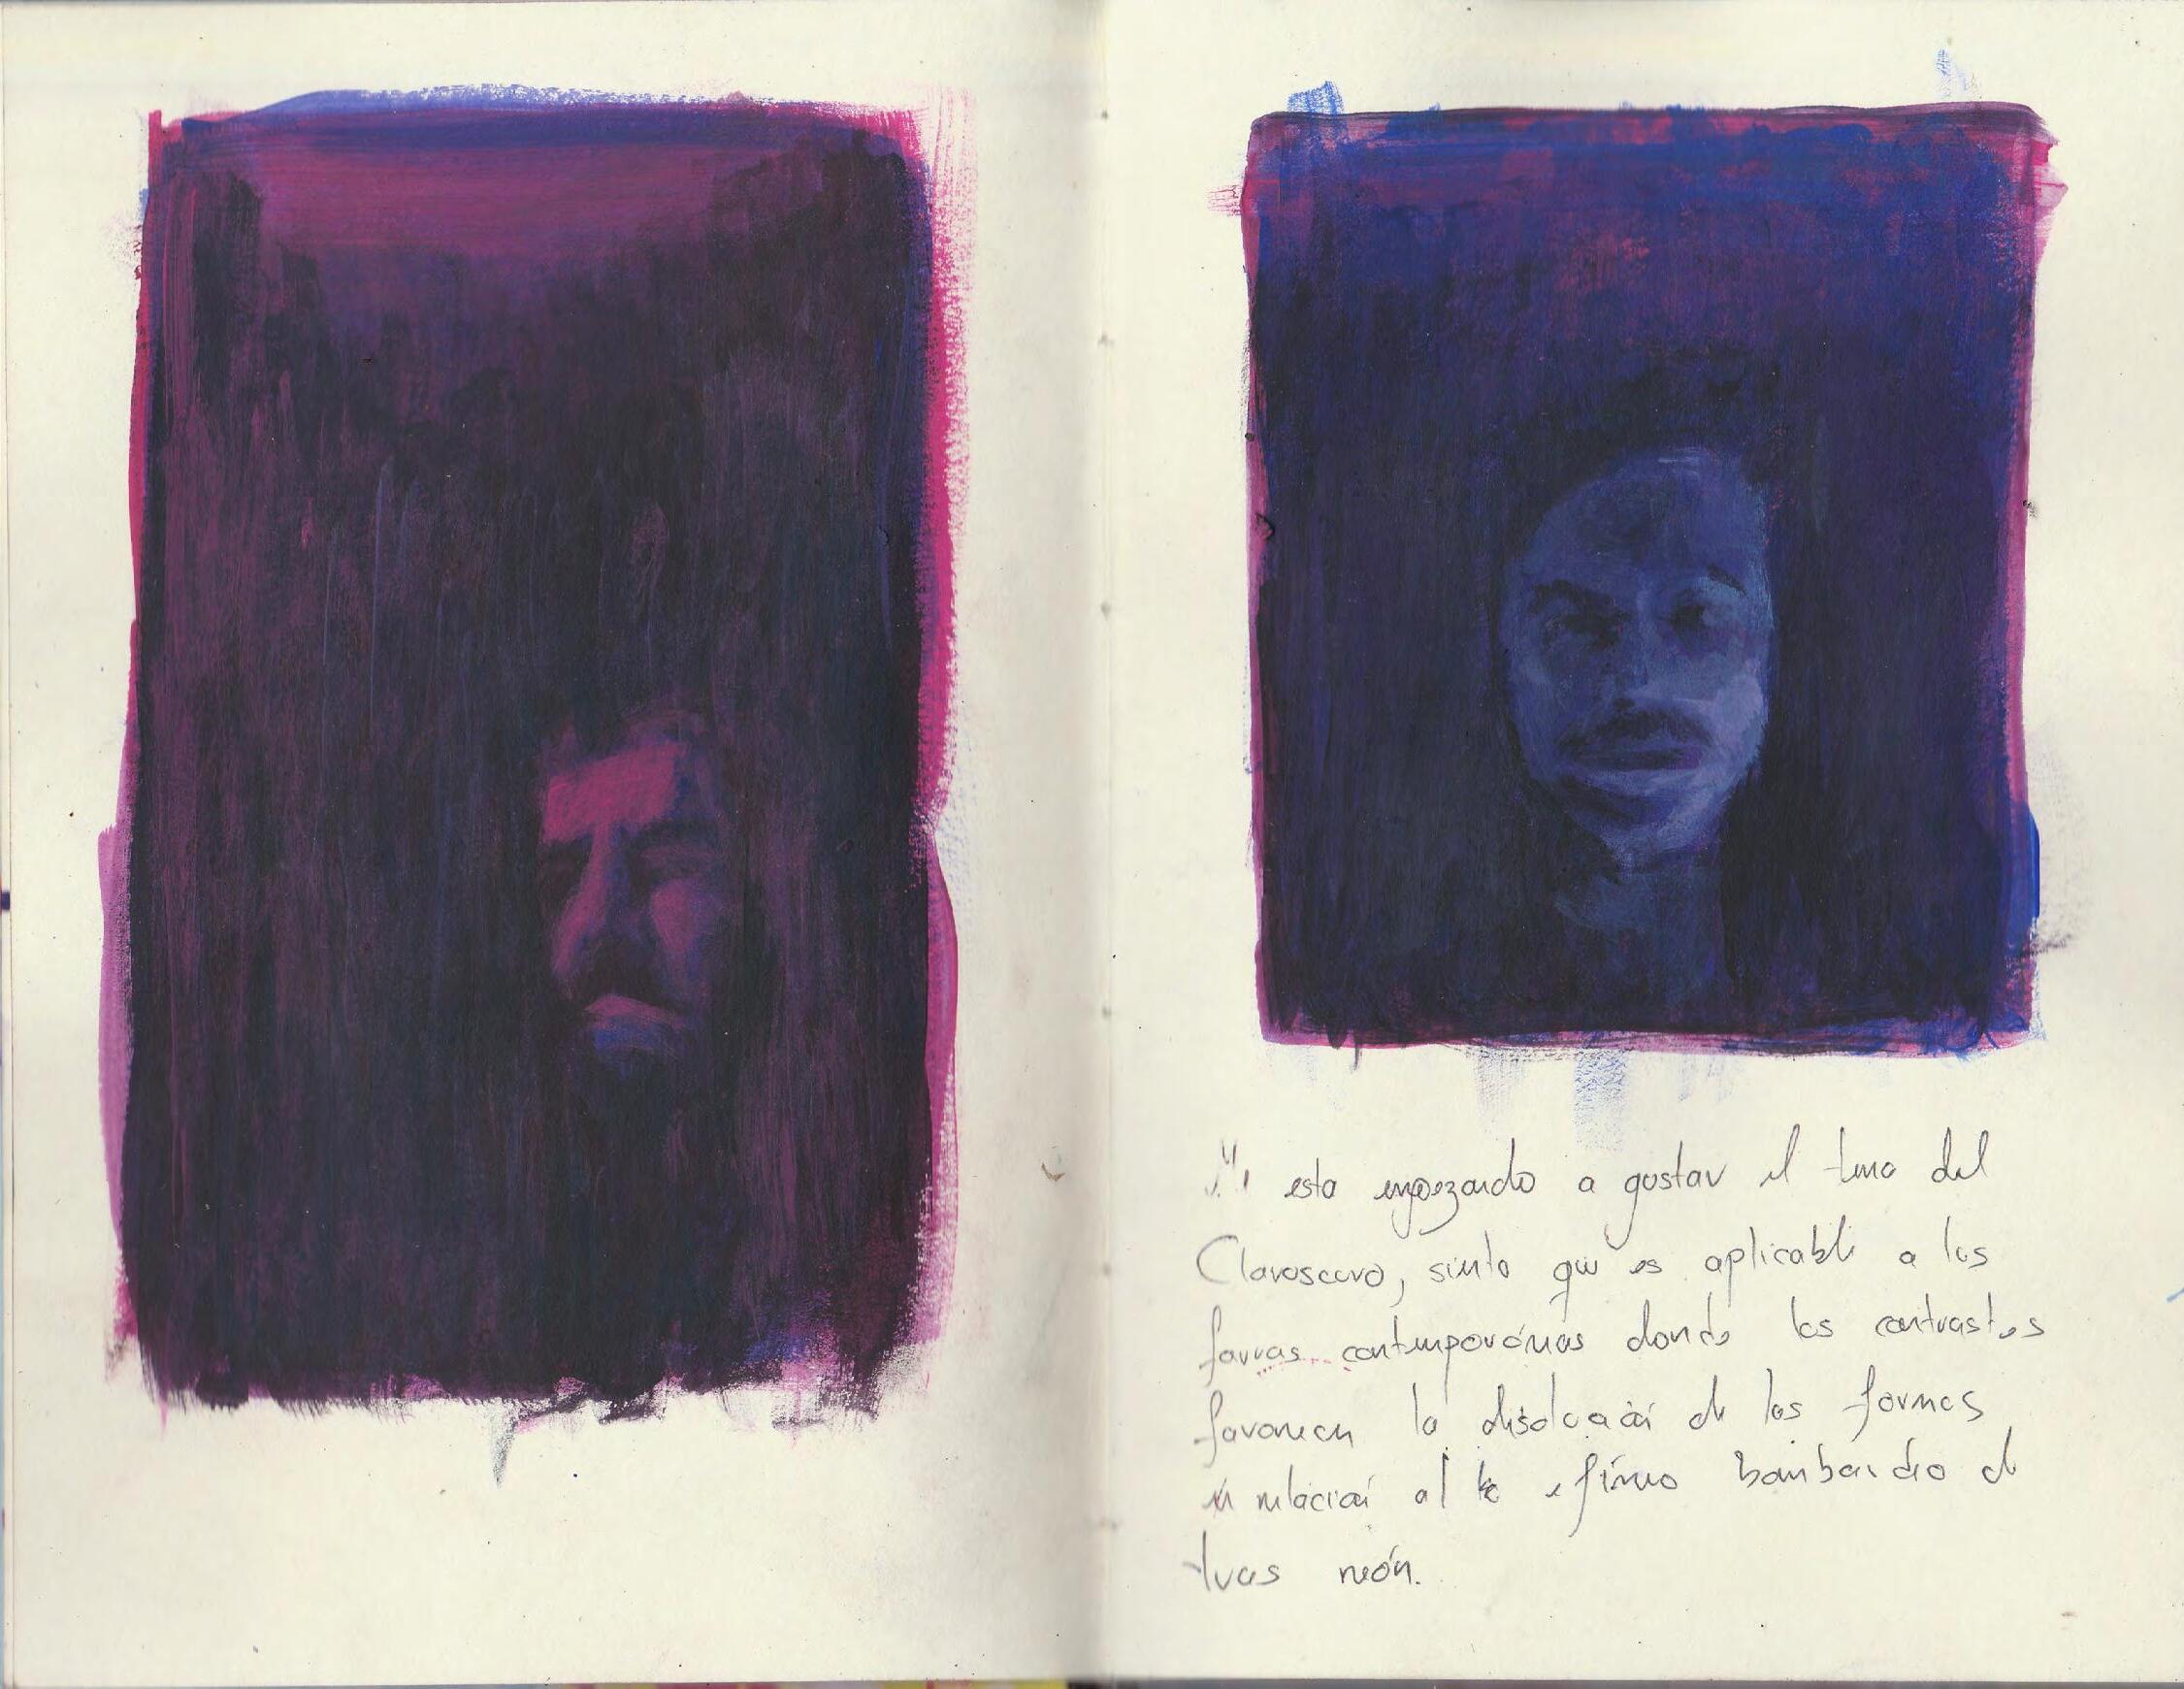 Me esta empezando a gustar el tema del
Claroscuro, siento que es aplicable a las
farras contemporáneas donde los contrastes
favorecen la disolución de las formas
en relación al efímero bombardeo de
luces neón.